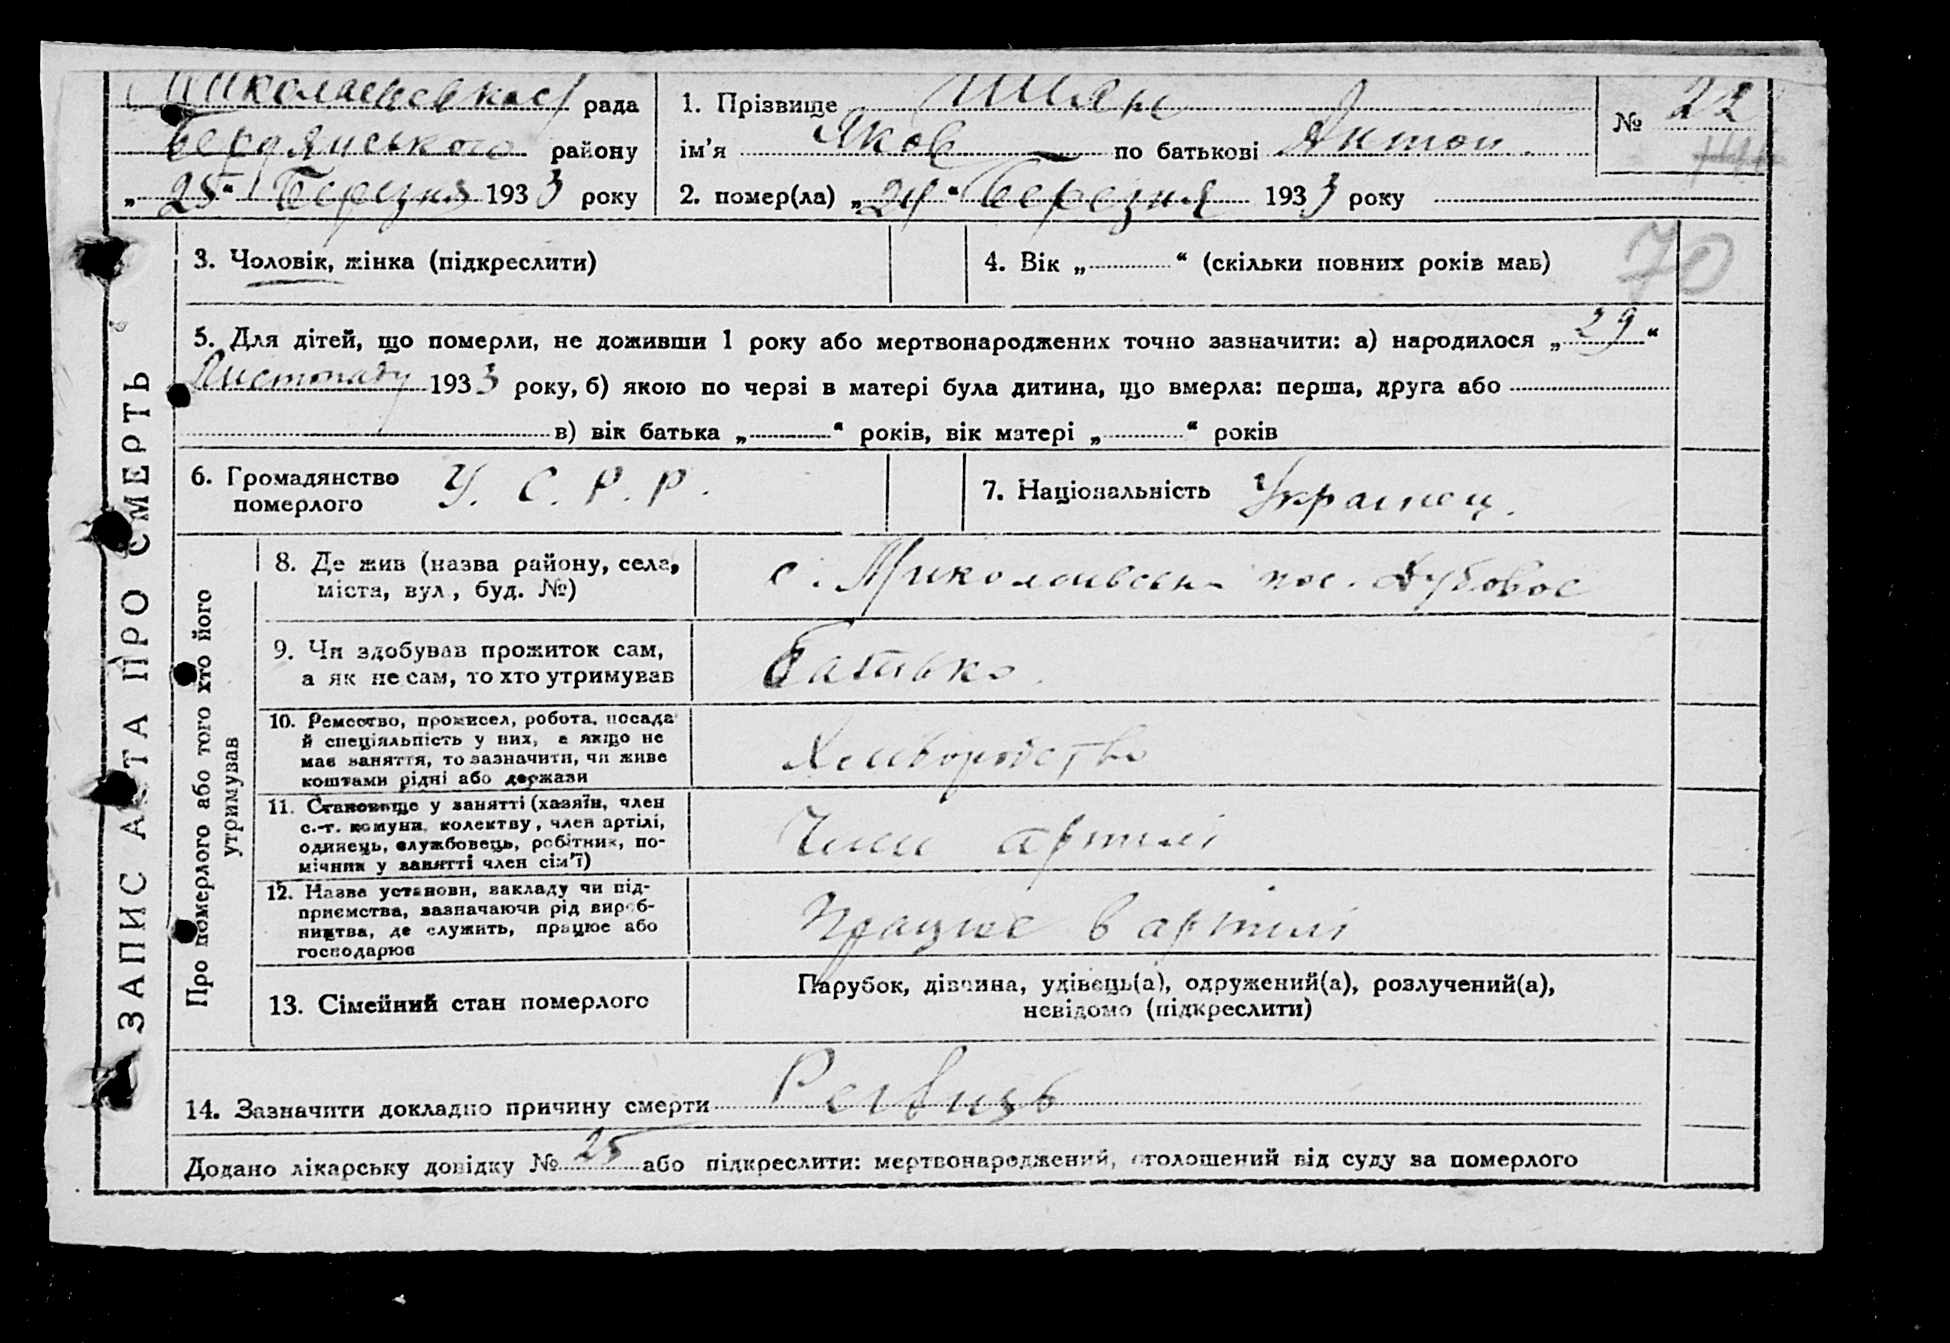 Миколаївської рада
Бердянського району
„25“ Березня 1933 року
1. Прізвище Шиян
ім'я Яков по батькові Антон.
2. помер(ла) „24“ Березня 1933 року
№ 22
70
ЗАПИС АКТА ПРО СМЕРТЬ
3. Чоловік, жінка (підкреслити)
4. Вік „ “ (скільки повних років мав)
5. Для дітей, що померли, не доживши 1 року або мертвонароджених точно зазначити: а) народилося „29“
Листопаду 1933 року, б) якою по черзі в матері була дитина, що вмерла: перша, друга або
в) вік батька „ “ років, вік матері „ “ років
6. Громадянство
померлого
У. С. Р. Р.
7. Національність Украинец.
Про померлого або того хто його
утримував
8. Де жив (назва району, села,
міста, вул., буд. №)
с. Миколаївськ пос. Дубовое
9. Чи здобував прожиток сам,
а як не сам, то хто утримував
Батько.
10. Ремество, промисел, робота, посада
й спеціяльність у них, а якщо не
має заняття, то зазначити, чи живе
коштами рідні або держави
Хлеборобство
11. Становище у занятті (хазяїн, член
с.-г. комуни, колектву, член артілі,
одинець, службовець, робітник, по-
мічник у занятті член сім'ї)
Член артилі
12. Назва установи, закладу чи під-
приємства, зазначаючи рід вироб-
ництва, де служить, працює або
господарює
Працює в артилі
13. Сімейний стан померлого
Парубок, дівчина, удівець(а), одружений(а), розлучений(а),
невідомо (підкреслити)
14. Зазначити докладно причину смерти
Додано лікарську довідку № 25 або підкреслити: мертвонароджений, оголошений від суду за померлого